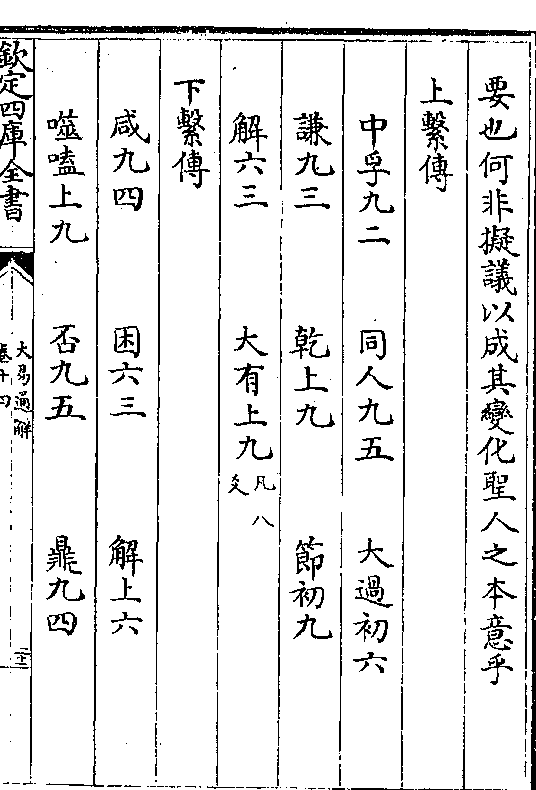 要也何非擬議以成其變化聖人之本意乎
上繫傳
中孚九二 同人九五 大過初六
謙九三 乾上九 節初九
解六三 大有上九 凡八爻
下繫傳
咸九四 困六三 解上六
噬嗑上九 否九五 鼎九四
欽定四庫全書
大易通解
卷十四